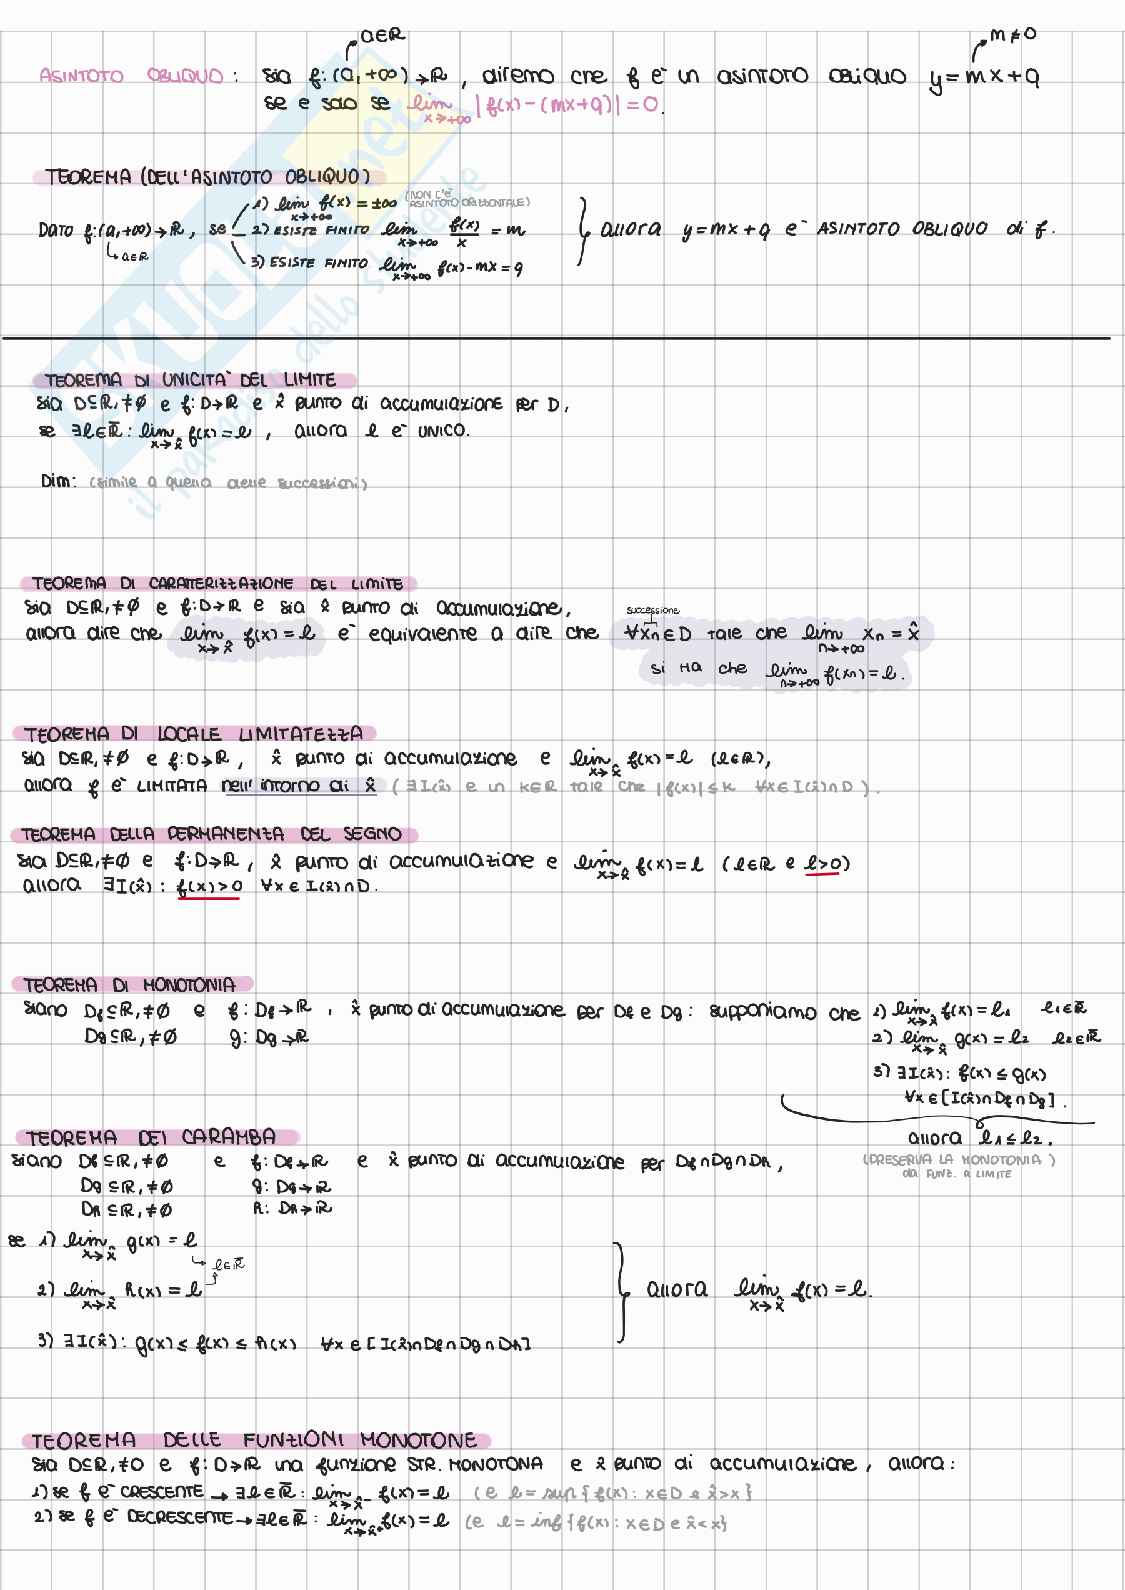 a∈ℝ
m≠0
ASINTOTO OBLIQUO: Sia f:(a,+∞)→ℝ, diremo che f è un asintoto obliquo y=mx+q
se e solo se lim x→+∞ |f(x)-(mx+q)|=0.
TEOREMA (DELL'ASINTOTO OBLIQUO)
1) lim x→+∞ f(x)=±∞ (NON C'È ASINTOTO ORIZZONTALE)
Dato f:(a,+∞)→ℝ, se 2) ESISTE FINITO lim x→+∞ f(x)/x = m allora y=mx+q è ASINTOTO OBLIQUO di f.
a∈ℝ
3) ESISTE FINITO lim x→+∞ f(x)-mx=q
TEOREMA DI UNICITÀ DEL LIMITE
Sia D⊆ℝ,≠∅ e f:D→ℝ e x̂ punto di accumulazione per D,
se ∃l∈ℝ̄: lim x→x̂ f(x)=l, allora l è UNICO.
Dim: (simile a quella delle successioni)
TEOREMA DI CARATTERIZZAZIONE DEL LIMITE
Sia D⊆ℝ,≠∅ e f:D→ℝ e sia x̂ punto di accumulazione,
successione
allora dire che lim x→x̂ f(x)=l è equivalente a dire che ∀xₙ∈D tale che lim n→+∞ xₙ=x̂
si ha che lim n→+∞ f(xₙ)=l.
TEOREMA DI LOCALE LIMITATEZZA
Sia D⊆ℝ,≠∅ e f:D→ℝ, x̂ punto di accumulazione e lim x→x̂ f(x)=l (l∈ℝ),
allora f è LIMITATA nell'intorno di x̂ (∃I(x̂) e un k∈ℝ tale che |f(x)|≤k ∀x∈I(x̂)∩D).
TEOREMA DELLA PERMANENZA DEL SEGNO
Sia D⊆ℝ,≠∅ e f:D→ℝ, x̂ punto di accumulazione e lim x→x̂ f(x)=l (l∈ℝ e l>0)
allora ∃I(x̂): f(x)>0 ∀x∈I(x̂)∩D.
TEOREMA DI MONOTONIA
Siano Df⊆ℝ,≠∅ e f:Df→ℝ, x̂ punto di accumulazione per Df e Dg: supponiamo che 1) lim x→x̂ f(x)=l₁ l₁∈ℝ̄
Dg⊆ℝ,≠∅ g:Dg→ℝ 2) lim x→x̂ g(x)=l₂ l₂∈ℝ̄
3) ∃I(x̂): f(x)≤g(x)
∀x∈[I(x̂)∩Df∩Dg].
allora l₁≤l₂.
(PRESERVA LA MONOTONIA)
da FUNZ. a LIMITE
TEOREMA DEI CARAMBA
Siano Df⊆ℝ,≠∅ e f:Df→ℝ e x̂ punto di accumulazione per Df∩Dg∩Dh,
Dg⊆ℝ,≠∅ g:Dg→ℝ
Dh⊆ℝ,≠∅ h:Dh→ℝ
se 1) lim x→x̂ g(x)=l
l∈ℝ̄
2) lim x→x̂ h(x)=l allora lim x→x̂ f(x)=l.
3) ∃I(x̂): g(x)≤f(x)≤h(x) ∀x∈[I(x̂)∩Df∩Dg∩Dh]
TEOREMA DELLE FUNZIONI MONOTONE
Sia D⊆ℝ,≠0 e f:D→ℝ una funzione STR. MONOTONA e x̂ punto di accumulazione, allora:
1) se f è CRESCENTE → ∃l∈ℝ̄: lim x→x̂⁻ f(x)=l (e l=sup{f(x): x∈D e x̂>x}
2) se f è DECRESCENTE → ∃l∈ℝ̄: lim x→x̂⁺ f(x)=l (e l=inf{f(x): x∈D e x̂<x}